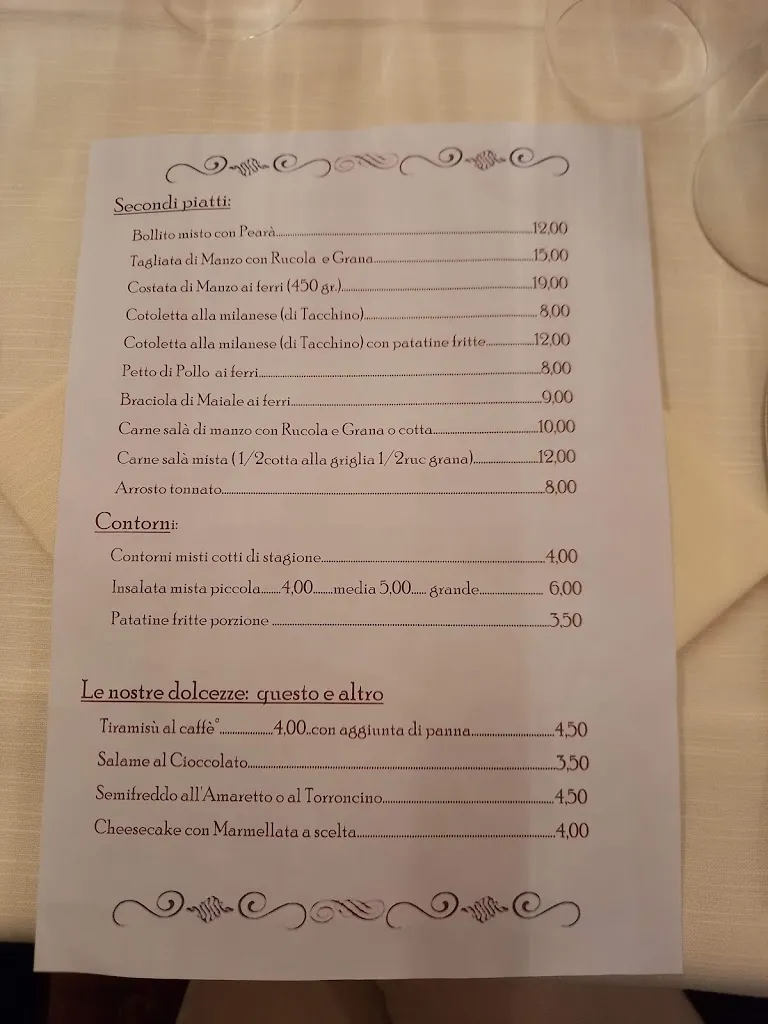 Secondi piatti:
Bollito misto con Pearà..........12,00
Tagliata di Manzo con Rucola e Grana..........15,00
Costata di Manzo ai ferri (450 gr.)..........19,00
Cotoletta alla milanese (di Tacchino)..........8,00
Cotoletta alla milanese (di Tacchino) con patatine fritte..........12,00
Petto di Pollo ai ferri..........8,00
Braciola di Maiale ai ferri..........9,00
Carne salà di manzo con Rucola e Grana o cotta..........10,00
Carne salà mista (1/2cotta alla griglia 1/2ruc grana)..........12,00
Arrosto tonnato..........8,00
Contorni:
Contorni misti cotti di stagione..........4,00
Insalata mista piccola.......4,00.......media 5,00..... grande.......... 6,00
Patatine fritte porzione ..........3,50
Le nostre dolcezze: questo e altro
Tiramisù al caffè°..........4,00..con aggiunta di panna..........4,50
Salame al Cioccolato..........3,50
Semifreddo all'Amaretto o al Torroncino..........4,50
Cheesecake con Marmellata a scelta..........4,00